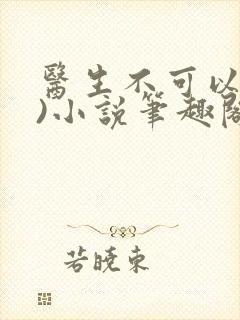 醫生不可以
)小說筆趣閣
若曉東